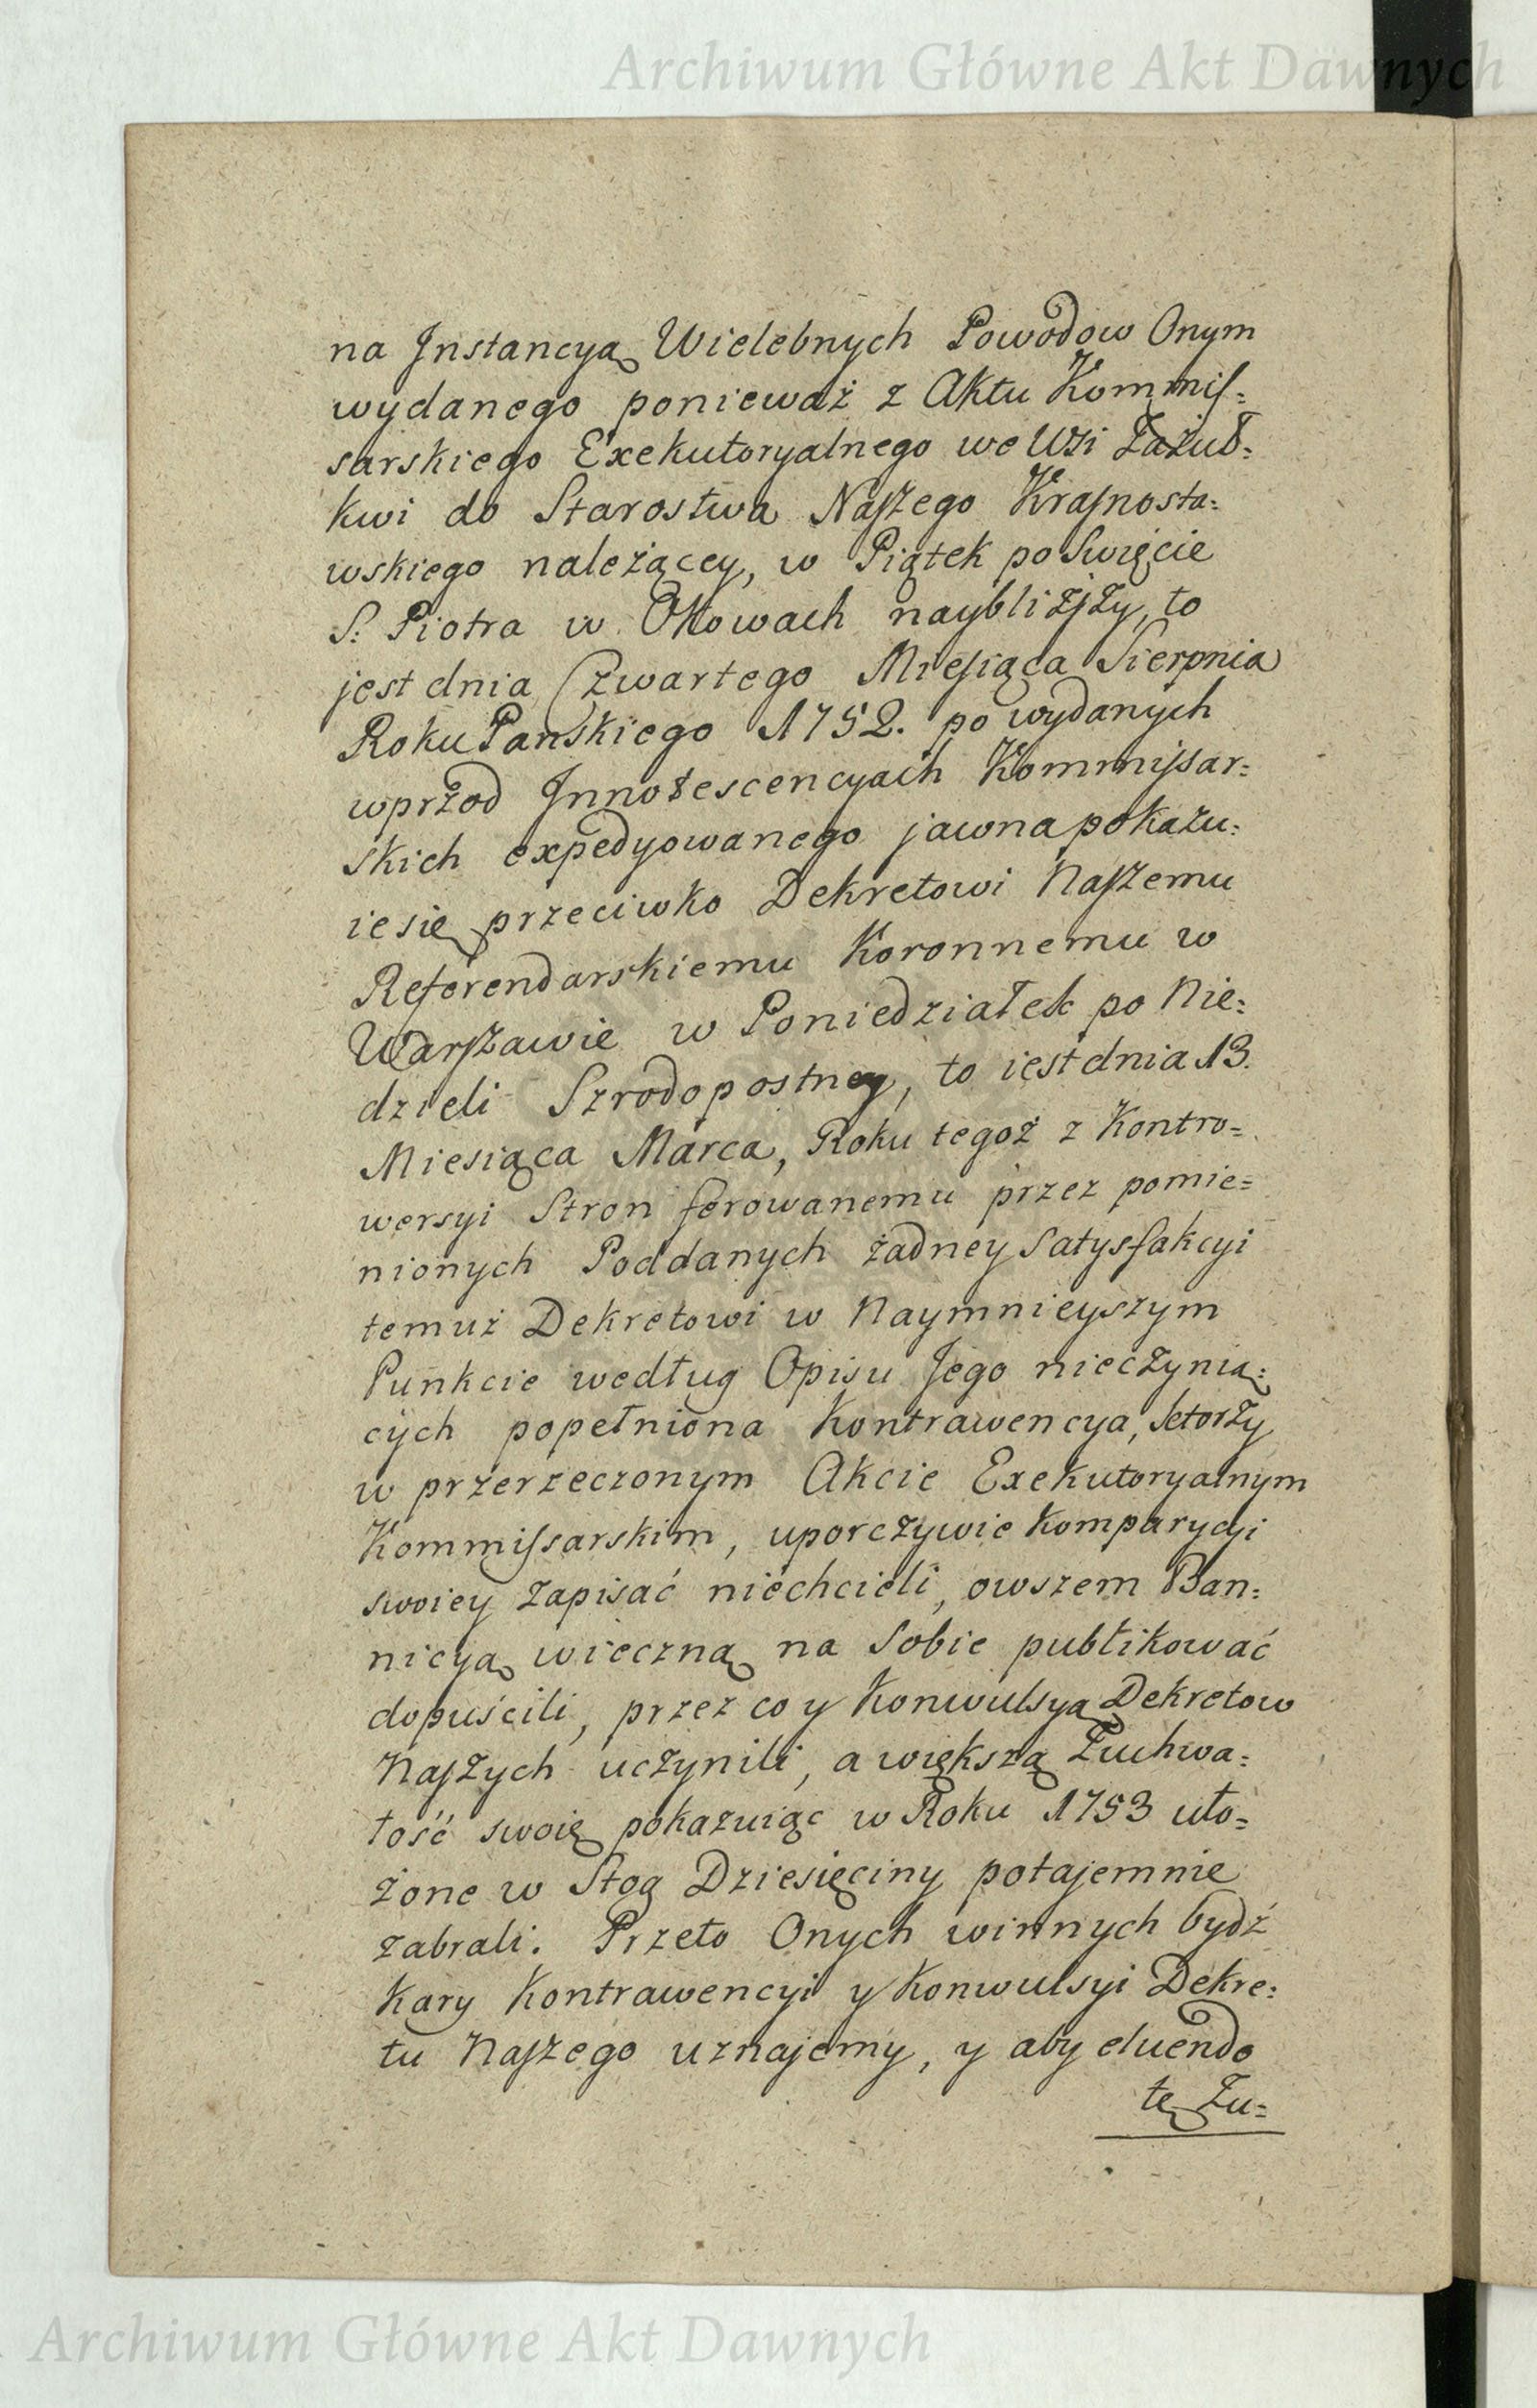 Archiwum Główne Akt Dawnych
na Jnstancyą Wielebnych Powodow Onym
wydanego ponieważ z Aktu Kommis=
sarskiego Exekutoryalnego we Wsi
kwi do Starostwa Naszego Krasnosta=
wskiego należącey, w Piątek po Swięcie
S: Piotra w Okowach naybliższy, to
jest dnia Czwartego Miesiąca Sierpnia
Roku Panskiego 1752. po wydanych
wprzod Jnnotescencyach Kommissar=
skich expedyowanego jawna pokazu=
ie się przeciwko Dekretowi Naszemu
Referendarskiemu Koronnemu w
Warszawie w Poniedziałek po Nie=
dzieli Szrodopostney, to iest dnia 13.
Miesiąca Marca, Roku tegoż z Kontro=
wersyi Stron ferowanemu przez pomie=
nionych Poddanych żadney Satysfakcyi
temuż Dekretowi w Naymnieyszym
Punkcie według Opisu Jego nieczynią=
cych popełniona Kontrawencya, ktorzy
w przerzeczonym Akcie Exekutoryalnym
Kommissarskim, uporczywie Komparycyi
swoiey zapisać niechcieli, owszem Ban=
nicyą wieczną na Sobie publikować
dopuścili, przez co y Konwulsyą Dekretow
Naszych uczynili, a większą Zuchwa=
łość swoię pokazuiąc w Roku 1753 uło=
żone w Stog Dziesięciny potajemnie
zabrali. Przeto Onych winnych bydź
Kary Kontrawencyi y Konwulsyi Dekre=
tu Naszego uznajemy, y aby eluendo
tę Zu=
Archiwum Główne Akt Dawnych